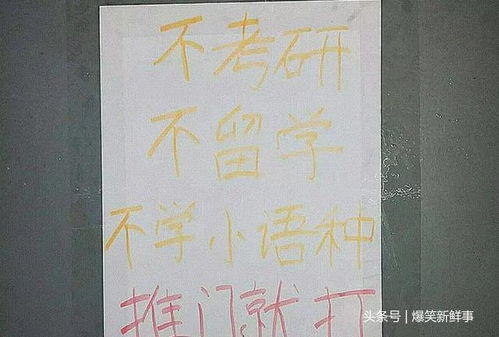 不考研
不留学
不学小语种
推门就打
头条号 / 爆笑新鲜事